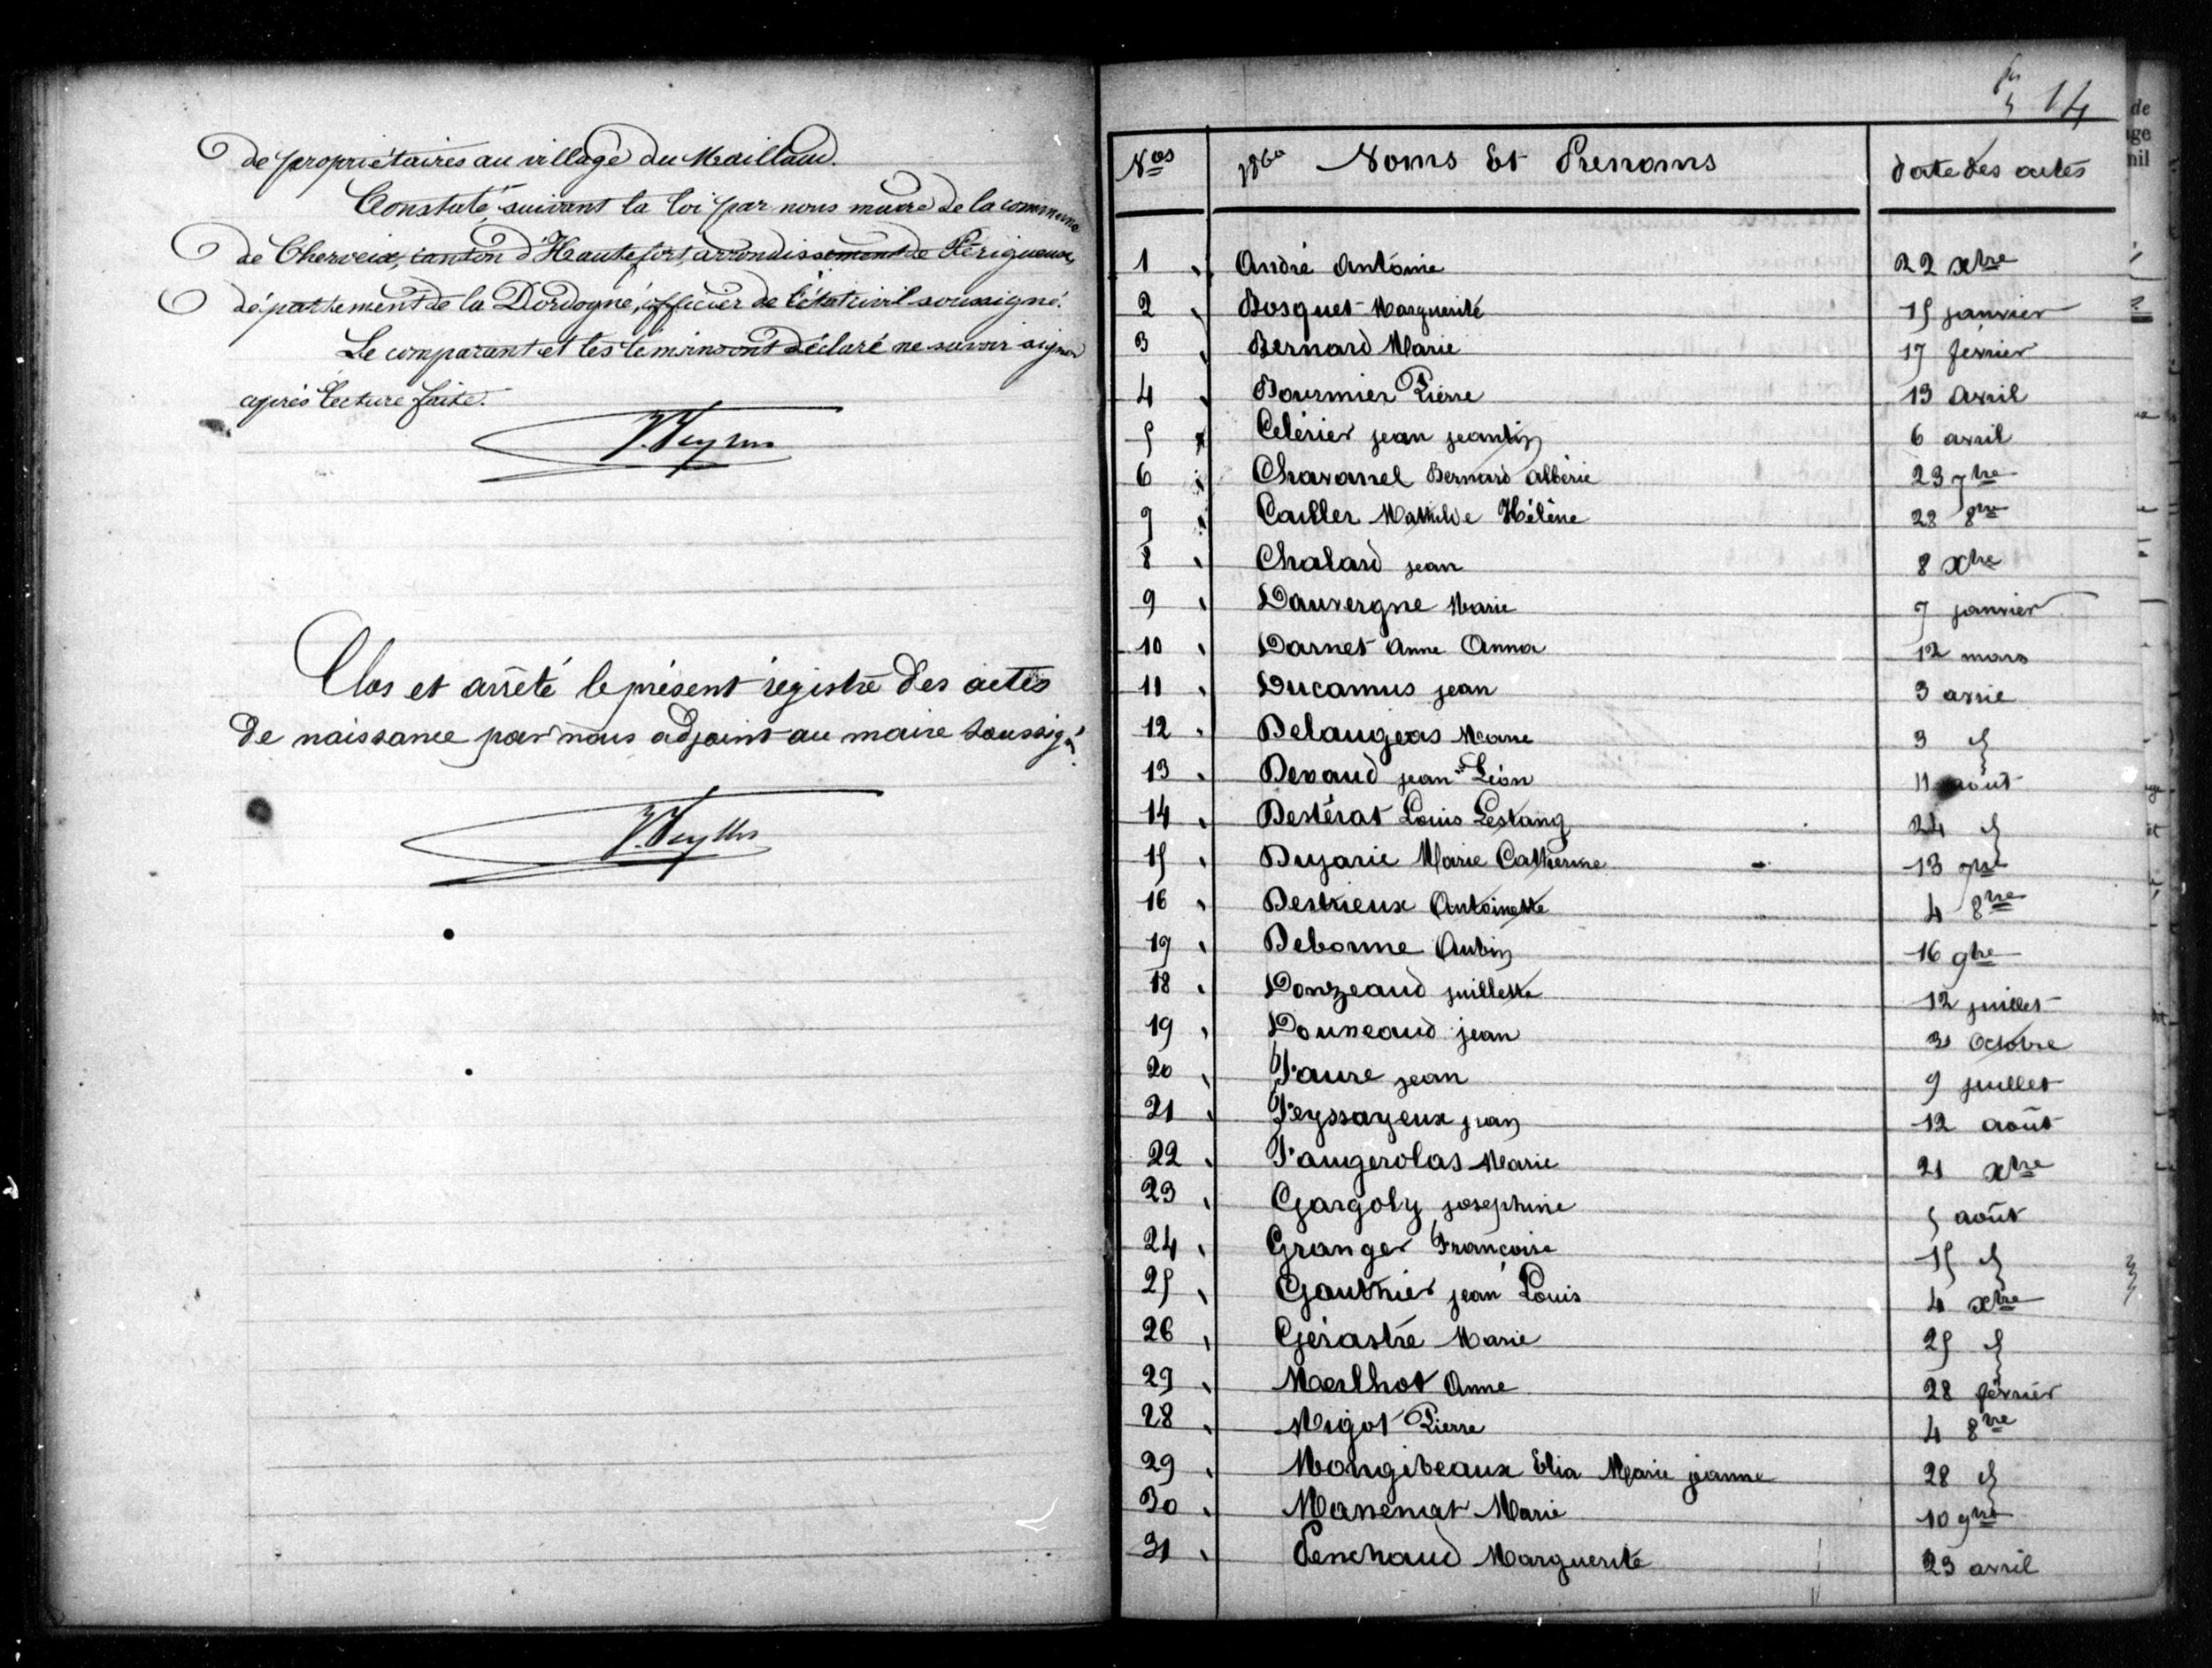 de propriétaires au village du Maillaud.
Constaté, suivant la loi par nous maire de la commune
de Cherveix, canton d'Hautefort, arrondissement de Périgueux,
département de la Dordogne, officier de l'état civil soussigné.
Le comparant et les témoins ont déclaré ne savoir signer
après lecture faite.
Clos et arrêté le présent registre des actes
de naissance par nous adjoint au maire soussigé
14
Nos Noms Et Prenoms date des actes
1 André Antoine 22 Xbre
2 Bosquet Marguerite 15 janvier
3 Bernard Marie 17 février
4 Bournier Pierre 13 avril
5 Celérier jean jeantin 6 avril
6 Chavanel Bernard Albéric 23 7bre
7 Cailler Mathilde Hélène 28 8bre
8 Chalard jean 8 Xbre
9 Dauvergne Marie 7 janvier
10 Darnet Anne Anna 12 mars
11 Ducamus jean 3 avril
12 Delaugeas Marie 3 d
13 Devaud jean Léon 11 août
14 Destérat Louis Lestang 24 d
15 Dujarie Marie Catherine 13 7bre
16 Destrieux Antoinette 4 8bre
17 Debonne Aubin 16 9bre
18 Donzeaud juillette 12 juillet
19 Douzeaud jean 31 Octobre
20 Faure jean 9 juillet
21 Feyssayeux jean 12 août
22 Faugerolas Marie 21 Xbre
23 Gargoly josephine 5 août
24 Granger Françoise 15 d
25 Gauthier jean Louis 4 Xbre
26 Gérastre Marie 25 d
27 Merlhot Anne 28 février
28 Migot Pierre 4 8bre
29 Mongibeaux Elia Marie jeanne 28 d
30 Manemat Marie 10 9bre
31 Penchaud Marguerite 23 avril